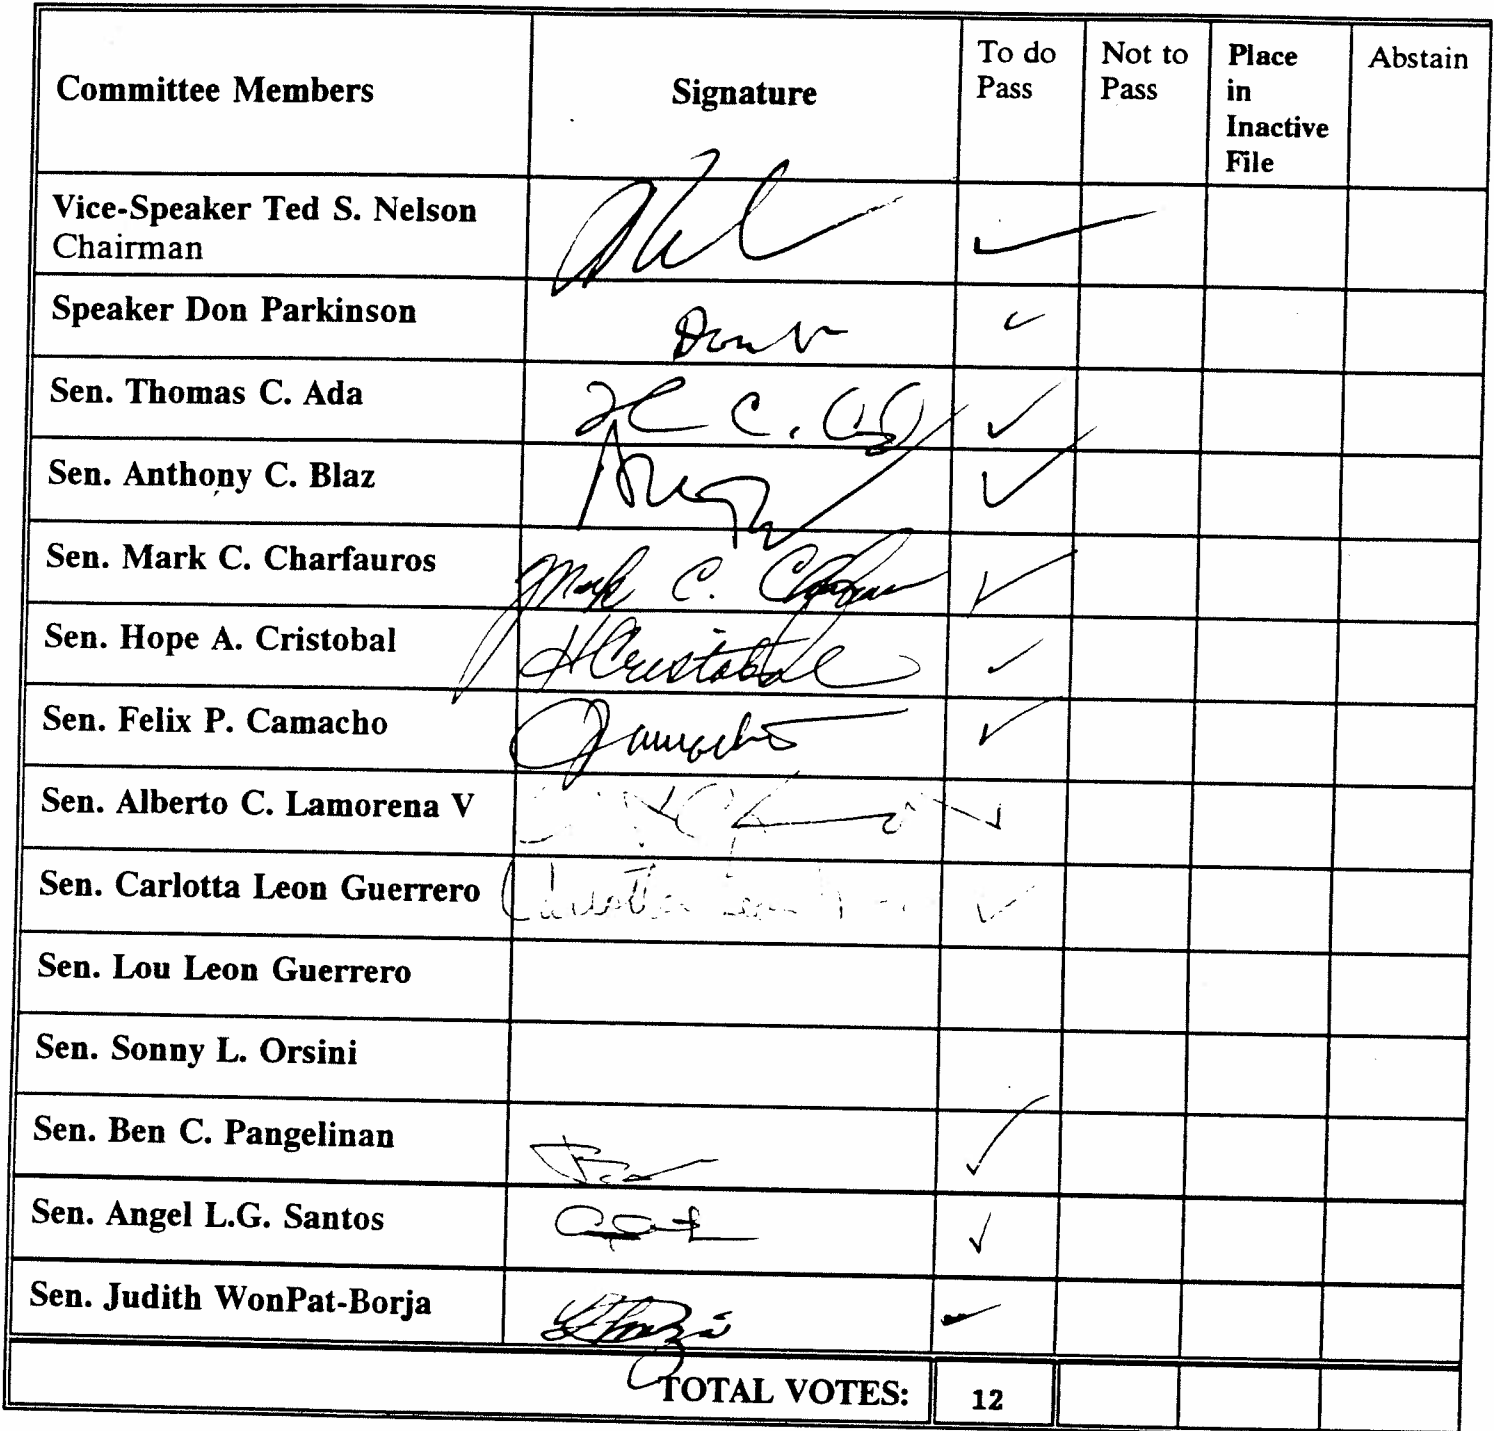 Committee Members
Signature
To do Pass
Not to Pass
Place in Inactive File
Abstain
Vice-Speaker Ted S. Nelson
Chairman
✓
Speaker Don Parkinson
✓
Sen. Thomas C. Ada
✓
Sen. Anthony C. Blaz
✓
Sen. Mark C. Charfauros
Mark C.
✓
Sen. Hope A. Cristobal
HCristobal
✓
Sen. Felix P. Camacho
Camacho
✓
Sen. Alberto C. Lamorena V
✓
Sen. Carlotta Leon Guerrero
✓
Sen. Lou Leon Guerrero
Sen. Sonny L. Orsini
Sen. Ben C. Pangelinan
✓
Sen. Angel L.G. Santos
✓
Sen. Judith WonPat-Borja
✓
TOTAL VOTES: 12